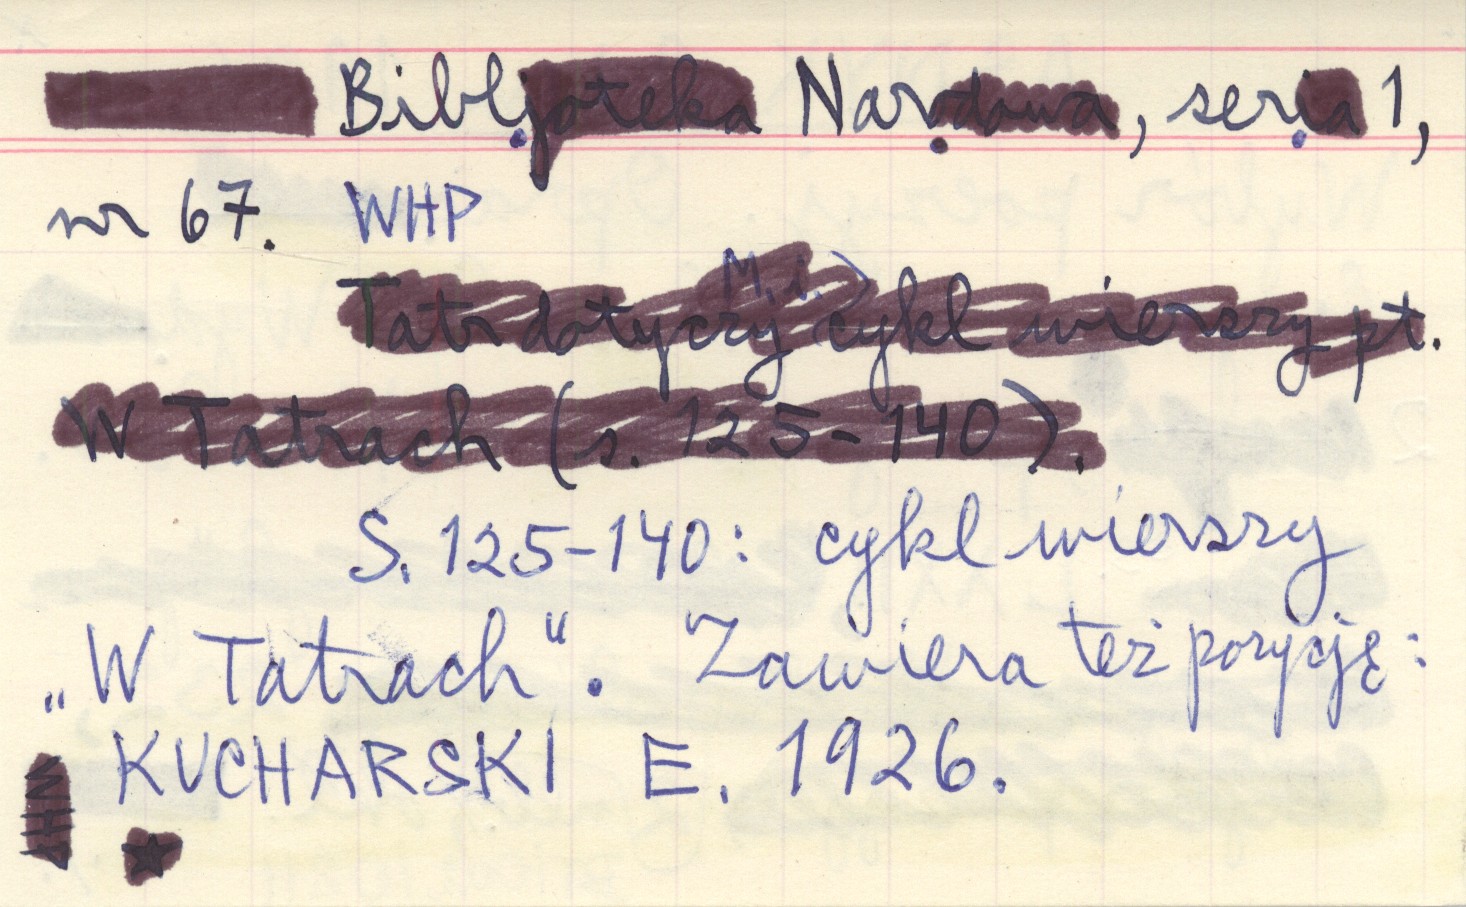 Bibljoteka Narodowa, seria 1,
nr 67. WHP
M.i.
Tatr dotyczy cykl wierszy pt.
W Tatrach (s. 125-140).
S. 125-140: cykl wierszy
„W Tatrach". Zawiera też pozycję:
KUCHARSKI E. 1926.